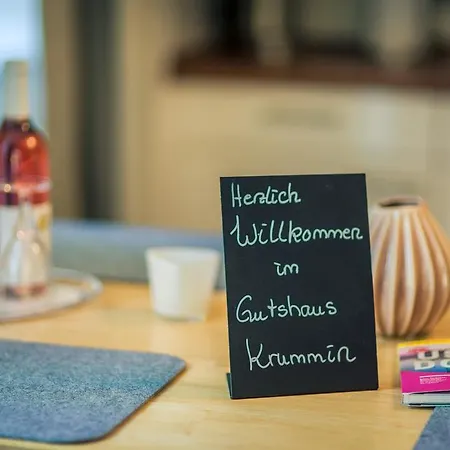 Herzlich
Willkommen
im
Gutshaus
Krummin